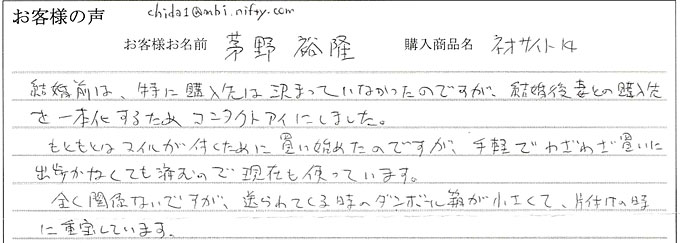 お客様の声 chida1@mbi.nifty.com
お客様お名前 茅野 裕隆 購入商品名 ネオサイト14
結婚前は、特に購入先は決まっていなかったのですが、結婚後妻との購入先
を一本化するため コンタクトアイにしました。
もともとはマイルが付くために買い始めたのですが、手軽でわざわざ買いに
出歩かなくても済むので現在も使っています。
全く関係ないですが、送られてくる時のダンボール箱が小さくて、片付けの時
に重宝しています。